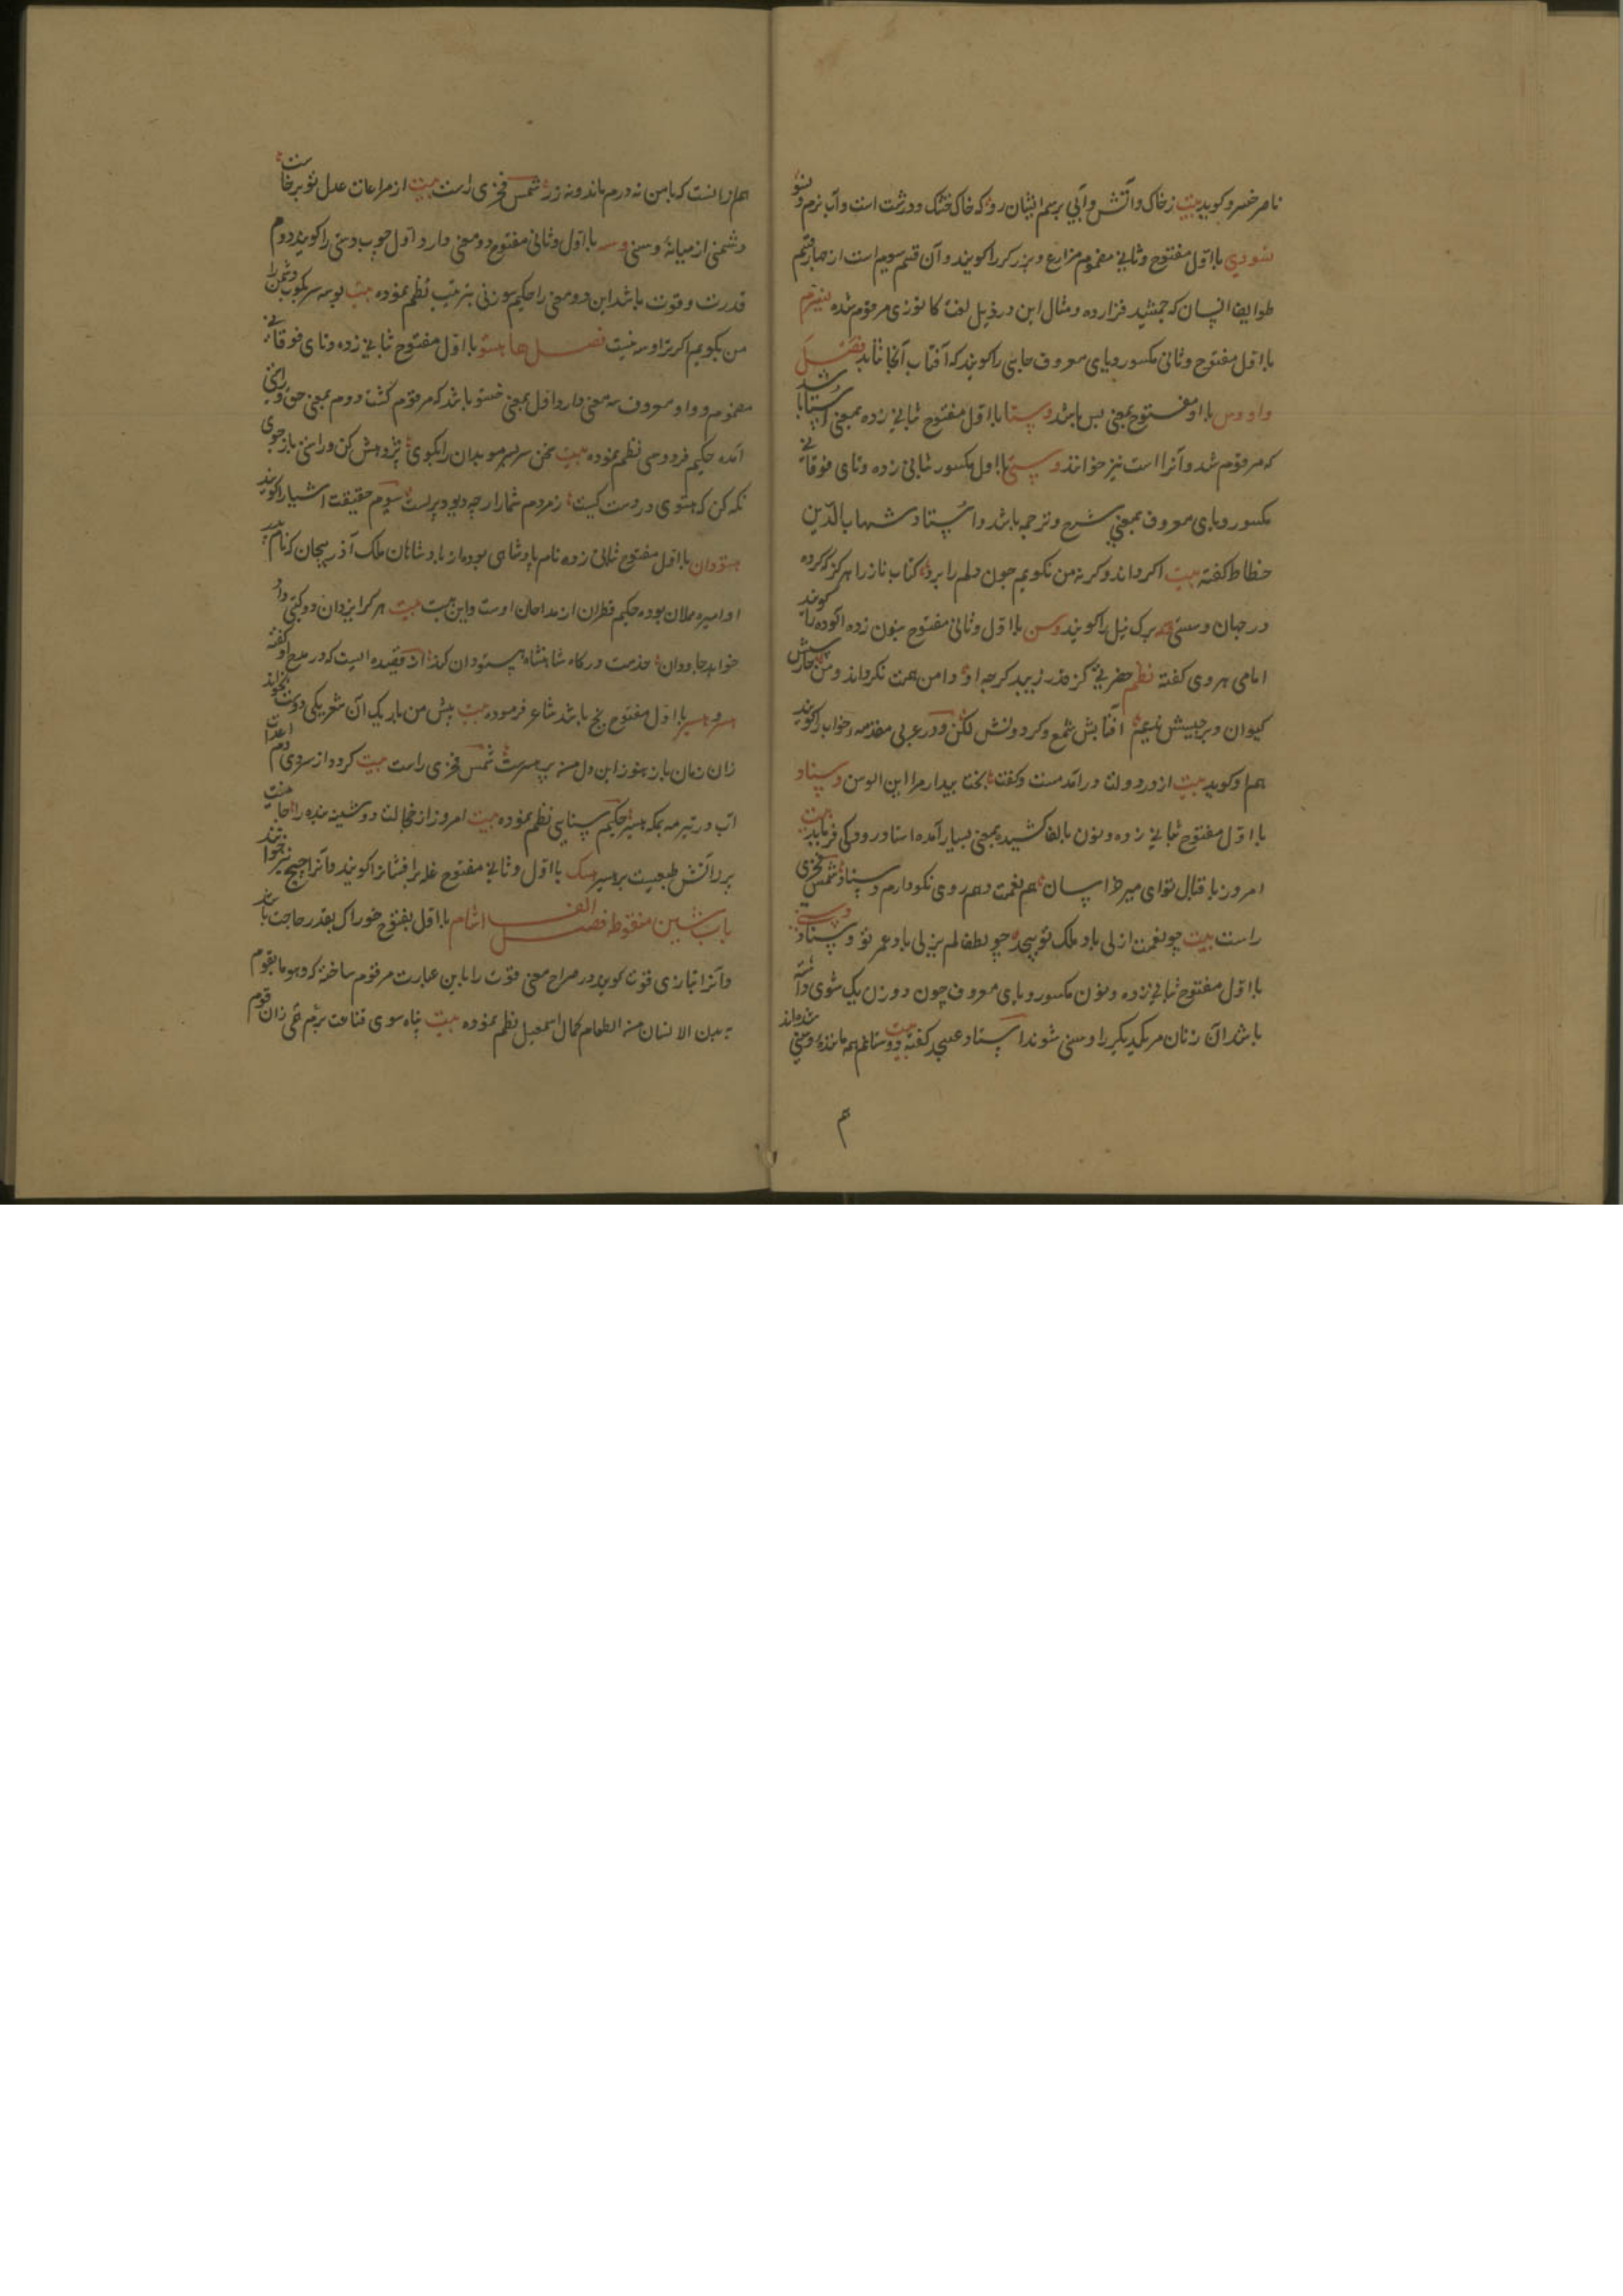 ناصر خسرو کوید بیت زخاک و آتش و آبی برسم ایشان رو که خاک خشک و درشت است و آب نرم و نسو
نسودی با اول مفتوح و ثانی مضموم مزارع و برزکر را کویند و آن قسم سویم است از چهار قسم
طوایف انسان که جمشید قرار داده و مثال این در ذیل لغت کاتوزی مرقوم شده نسرم
با اول مفتوح و ثانی مکسور و یای معروف جایی را کویند که آفتاب آنجا نتابد فصل
واو وس با او مفتوح بمعنی بس باشد وستا با اول مفتوح ثانی زده بمعنی استا باشد
که مرقوم شد و آنرا است نیز خوانند وستی با اول مکسور ثانی زده و تای فوقانی
مکسور و یای معروف بمعنی شرح و ترجمه باشد و استاد شهاب الدین
خطاط کفته بیت اکر داند وکرنه من نکویم چون دلم را برد کتاب ناز را هرکز که کرده
در جهان وستی برک نیل را کویند وسن با اول و ثانی مفتوح بنون زده آلوده را کویند
امامی هروی کفته نظم حضرتی کز قدر زیبد کرچه او دامن همت نکرداند وسن حارسش
کیوان و برجیسش ندیم آفتابش شمع و کردونش لکن و در عربی مقدمه خواب را کویند
هم او کوید بیت از در دولت درآمد مست و کفت بخت بیدار مرا این الوسن وسناد
با اول مفتوح ثانی زده و نون بالف کشیده بمعنی بسیار آمده استاد رودکی فرماید بیت
امروز باقبال توای میر خراسان هم نعمت و هم روی نکو دارم وسناد شمس فخری
راست بیت چو نعمت ازلی باد ملک تو بیحد چو لطف لم یزلی باد عمر تو وسناد وسنی
با اول مفتوح ثانی زده و نون مکسور و یای معروف چون دو زن یک شوی داشته
باشد آن زنان مر یکدیکر را وسنی شوند استاد عسجدی کفته بیت دوستانم همه مانند وسنی شده‌اند
هم از آنست که با من نه درم ماند و نه زر شمس فخری راست بیت از مراعات عدل تو برخاست
دشمنی از میانه وسنی وسه با اول و ثانی مفتوح دو معنی دارد اول چوب دستی را کویند دوم
قدرت و قوت باشد این دو معنی را حکیم سوزنی بترتیب نظم نموده بیت بوسه سر بکوب دشمن را
من بکویم اکر ترا وسه نیست فصل ها هستو با اول مفتوح ثانی زده و تای فوقانی
مضموم و واو معروف سه معنی دارد اول بمعنی خستو باشد که مرقوم کشت دوم بمعنی حق و راستی
آمده حکیم فردوسی نظم نموده بیت سخن سربسر موبدان را بکوی پژوهش کن و راستی بازجوی
نکه کن که هستوی درست کیست ز مردم شمار ار چه دیو و پریست سیوم حقیقت اشیا را کویند
هستودان با اول مفتوح ثانی زده نام پادشاهی بوده از پادشاهان ملک آذربیجان که نام پسر
او امیر مملان بوده حکیم قطران از مداحان اوست و این بیت بیت هر کرا یزدان دو کیتی داد
خواهد جاودان خدمت درکاه شاهنشاه هستودان کند از قصیده ایست که در مدح او کفته
هسر و هسیر با اول مفتوح یخ باشد شاعر فرموده بیت پیش من باریک آن شعر یکی دوست بخواند
زان زمان باز هنوز این دل من پر هسرست شمس فخری راست بیت کردد از سردی دم اعدات
آب در تیرمه بمکه هسیر حکیم سنایی نظم نموده بیت امروز از خجالت دوشینه بنده را جاییست
بر ز آتش طبیعت بر هسیر هسک با اول و ثانی مفتوح غله برافشان را کویند و آنرا چچ نیز خوانند
باب شین منقوطه فصل الف اشام با اول مفتوح خوراک بقدر حاجت باشد
و آنرا بتازی قوت کویند در صراح معنی قوت را باین عبارت مرقوم ساخته که و هو ما یقوم
به بدن الانسان من الطعام کمال اسمعیل نظم نموده بیت پناه سوی قناعت برم همی زان قوم